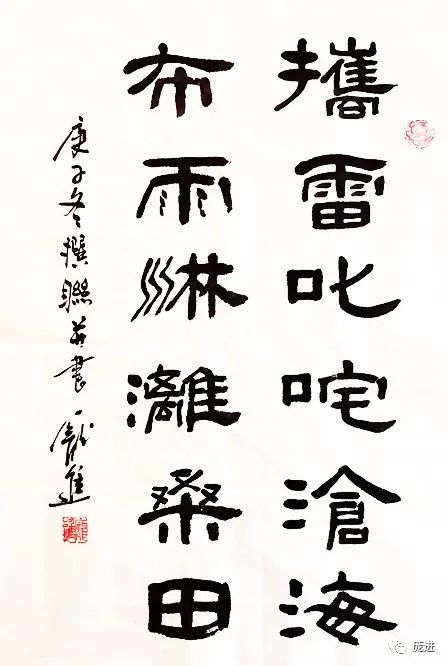 攜雷叱咤滄海
布雨淋灕桑田
庚子冬撰聯并書 龐進
庞进